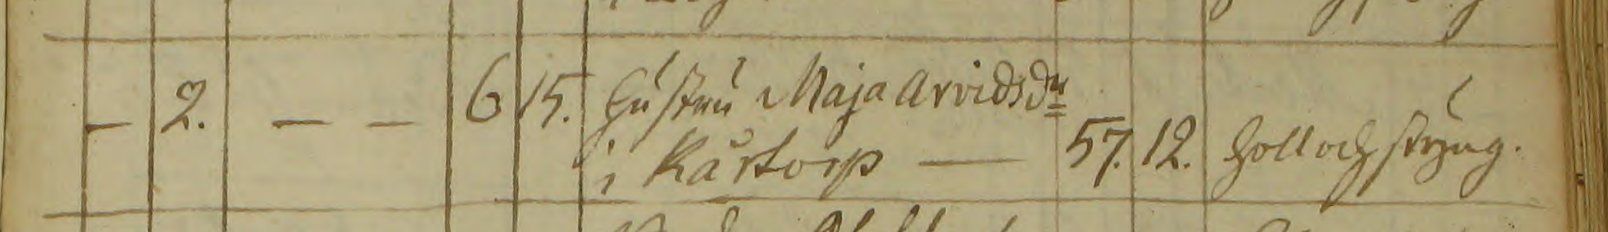 — 2. — — 6 15. Hustru Maja Arvidsdr
i Kårtorp — 57. 12. Håll och styng.